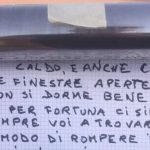 CALDO, E ANCHE C
E FINESTRE APERTE
ON SI DORME BENE
PER FORTUNA CI SI
MPRE VOI A TROVAR
MODO DI ROMPERE